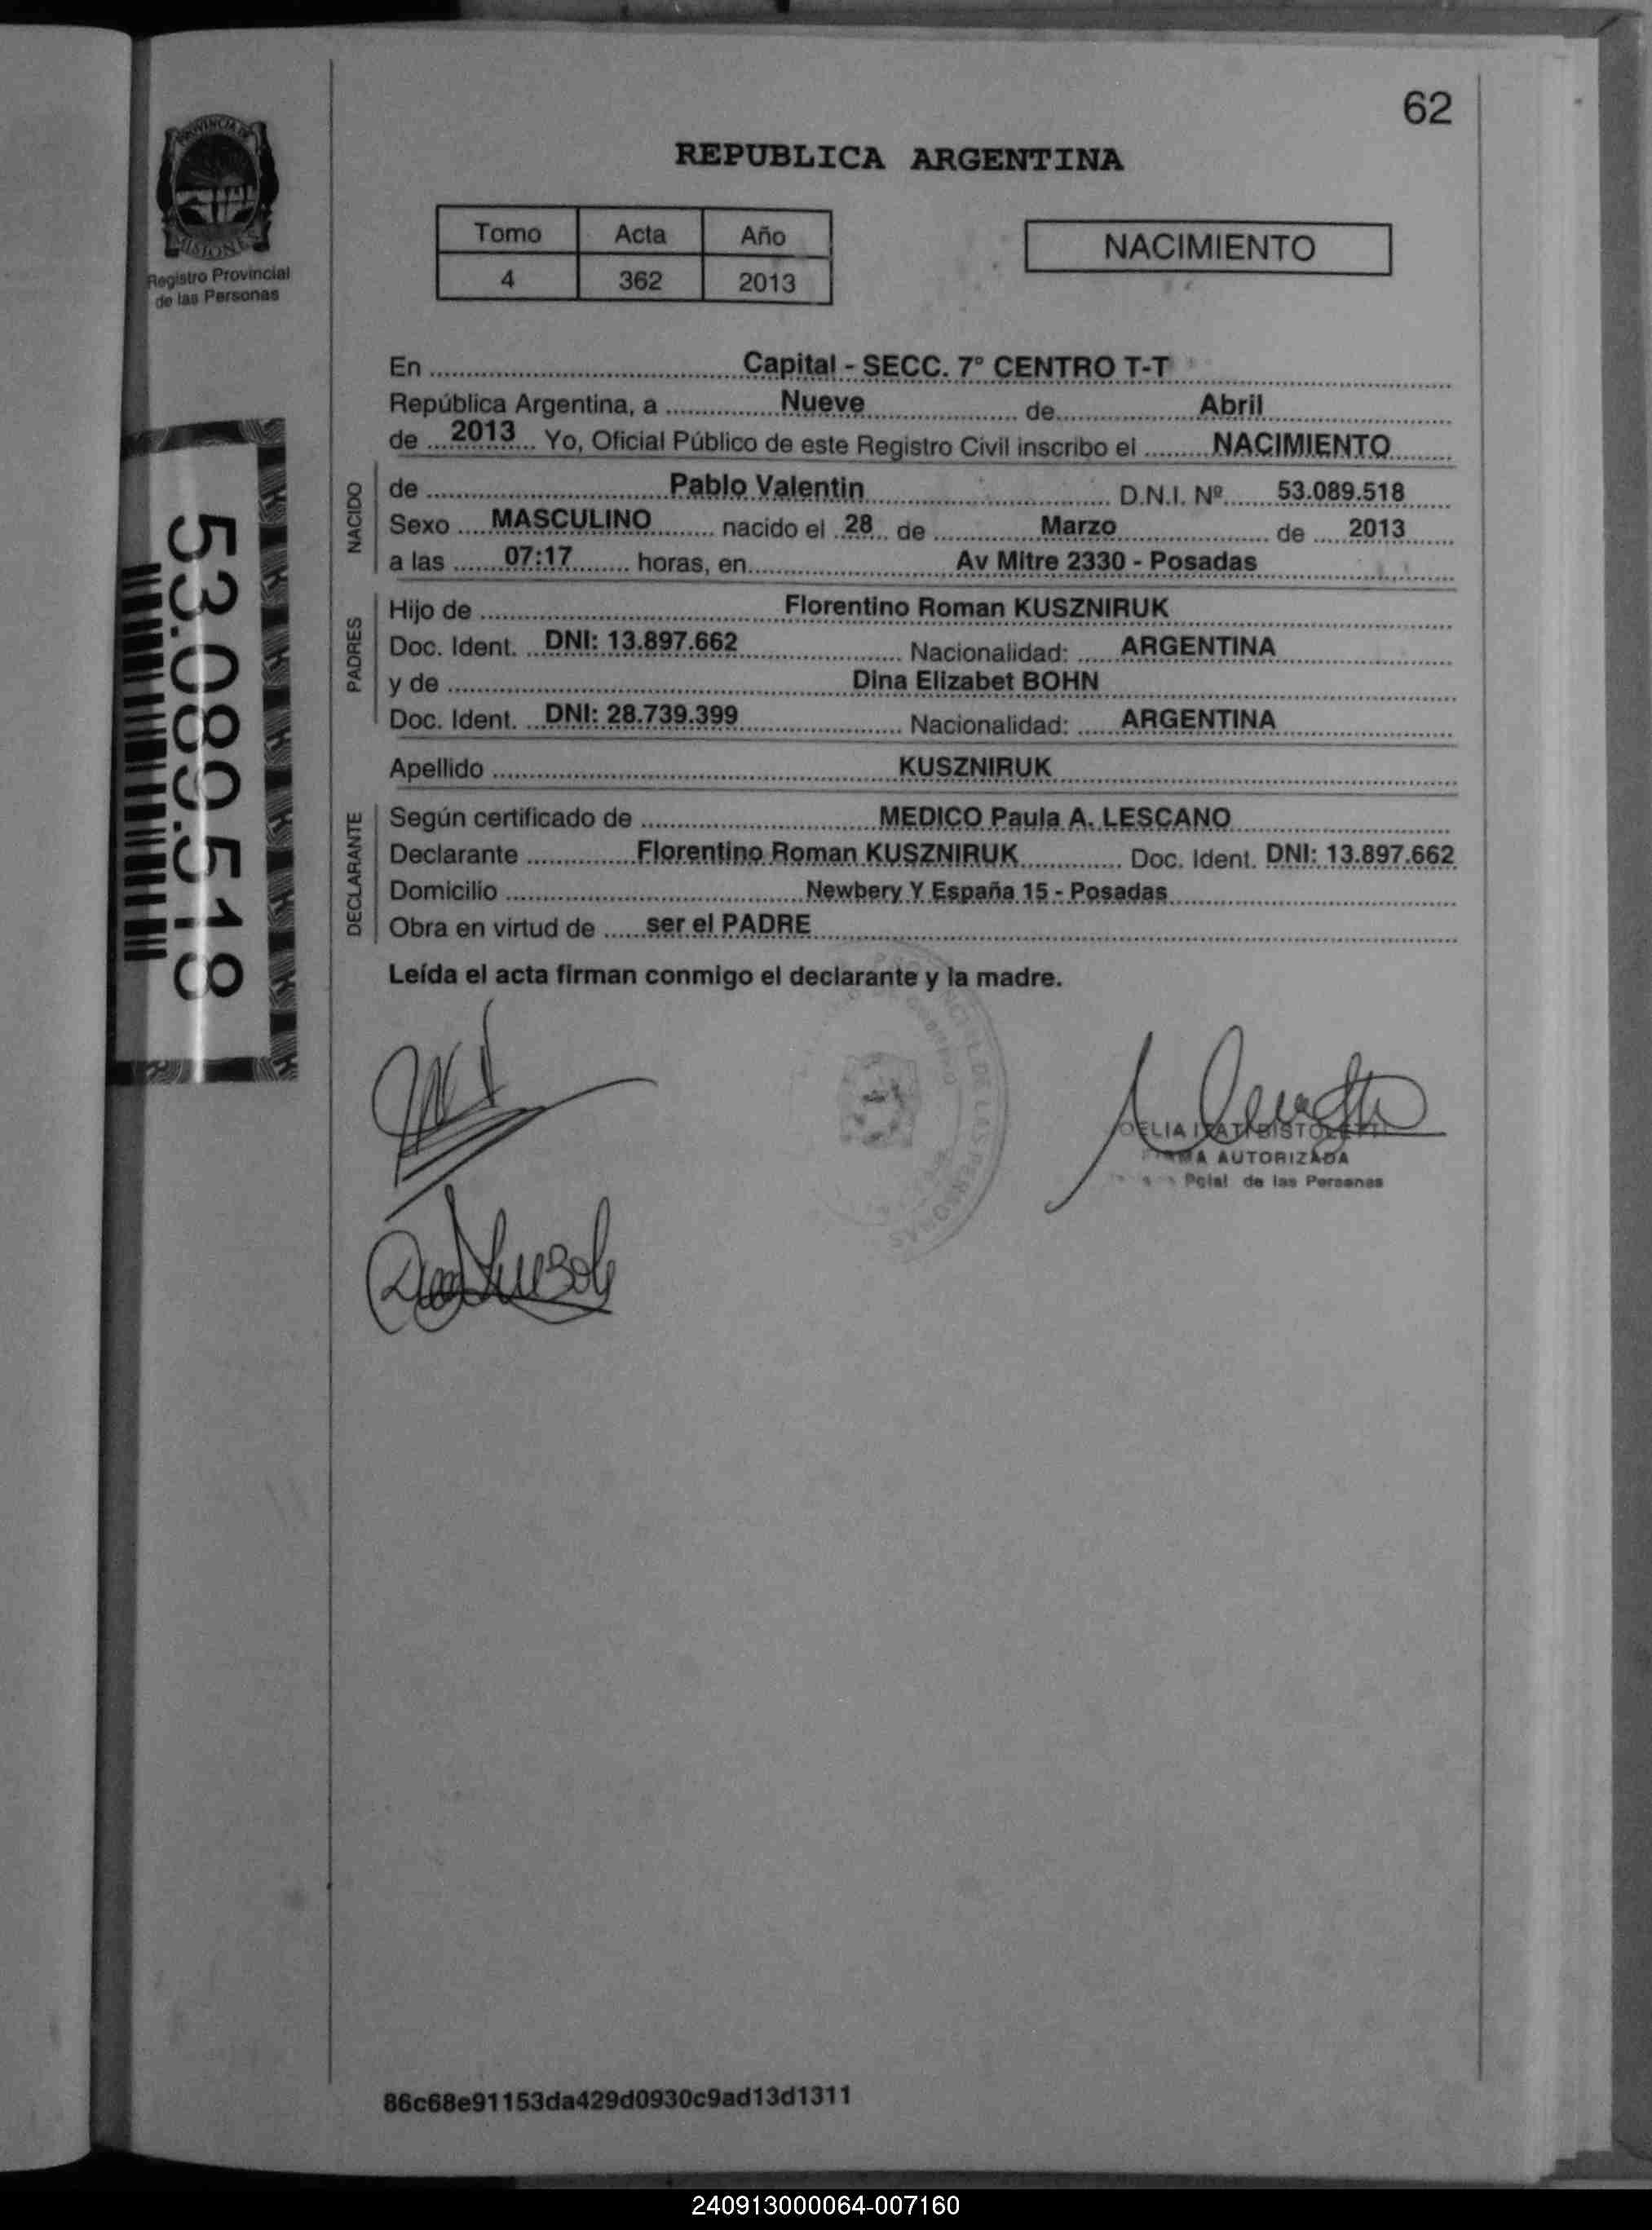 62
PROVINCIA DE
MISIONES
Registro Provincial
de las Personas
REPUBLICA ARGENTINA
Tomo Acta Año
4 362 2013
NACIMIENTO
En Capital - SECC. 7° CENTRO T-T
República Argentina, a Nueve de Abril
de 2013 Yo, Oficial Público de este Registro Civil inscribo el NACIMIENTO
NACIDO
de Pablo Valentin D.N.I. Nº 53.089.518
Sexo MASCULINO nacido el 28 de Marzo de 2013
a las 07:17 horas, en Av Mitre 2330 - Posadas
PADRES
Hijo de Florentino Roman KUSZNIRUK
Doc. Ident. DNI: 13.897.662 Nacionalidad: ARGENTINA
y de Dina Elizabet BOHN
Doc. Ident. DNI: 28.739.399 Nacionalidad: ARGENTINA
Apellido KUSZNIRUK
DECLARANTE
Según certificado de MEDICO Paula A. LESCANO
Declarante Florentino Roman KUSZNIRUK Doc. Ident. DNI: 13.897.662
Domicilio Newbery Y España 15 - Posadas
Obra en virtud de ser el PADRE
Leída el acta firman conmigo el declarante y la madre.
53.089.518
DE LAS PERSONAS
AUTORIZADA
de las Personas
86c68e91153da429d0930c9ad13d1311
240913000064-007160